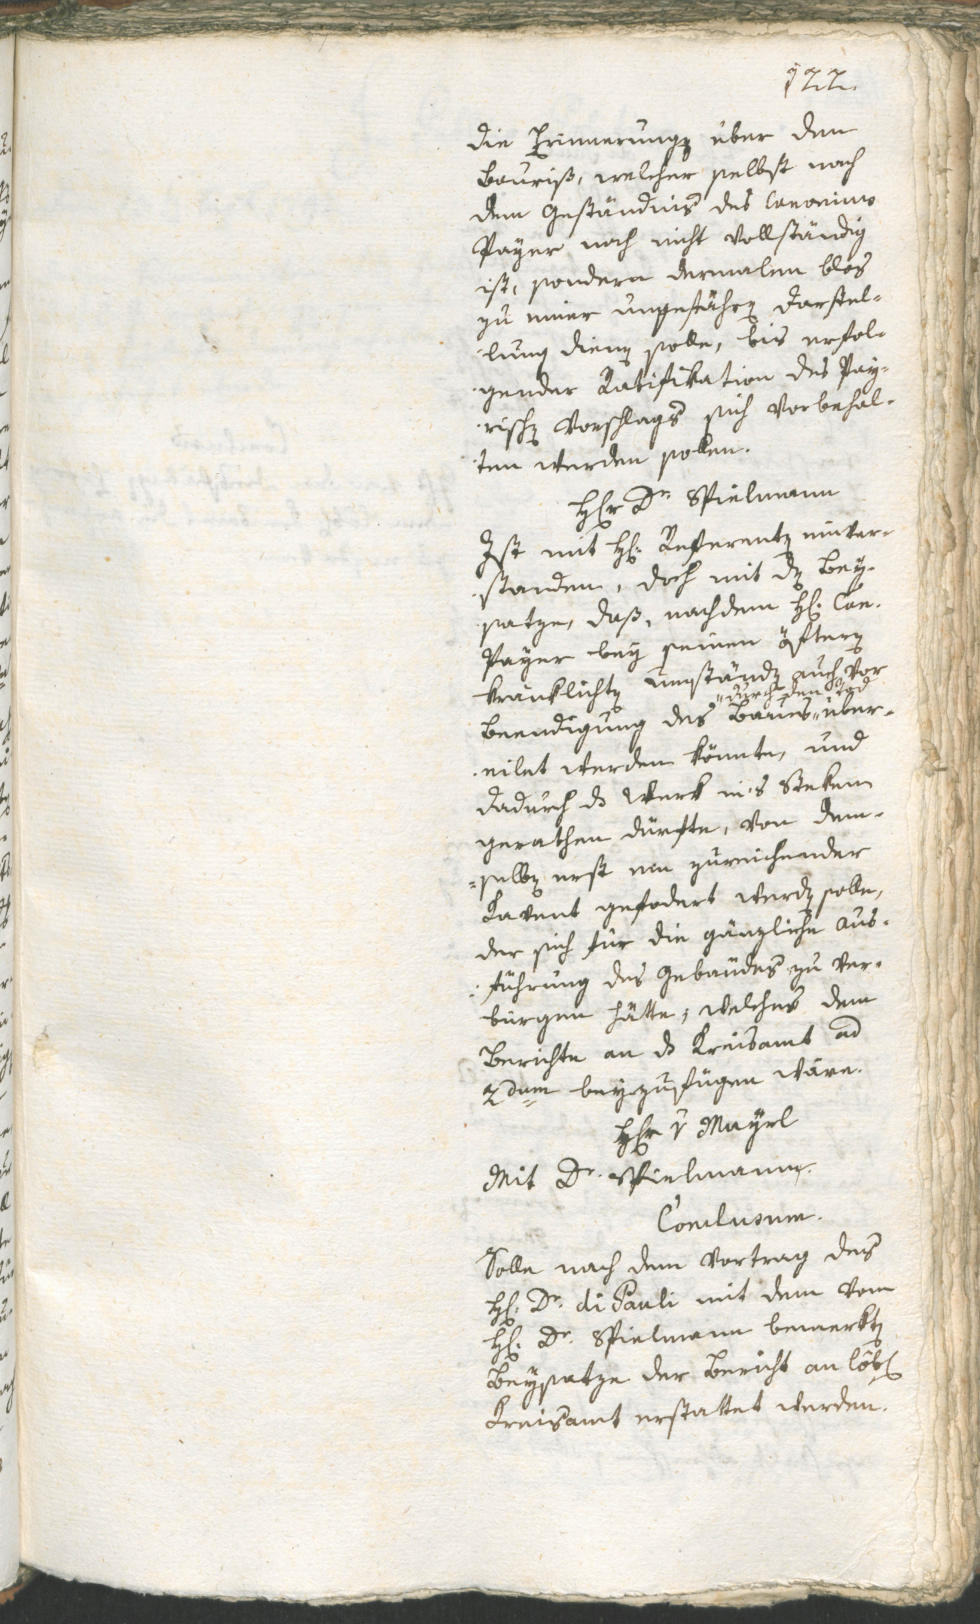 177.
die Erinnerung über den
Bauriß, welcher selbst nach
dem Geständnis des Canonicus
Payer noch nicht vollständig
ist, sondern dermalen blos
zu einer ungefähren Darstel-
lung dienen solle, bis erfol-
gender Ratifikation des Pay-
rischen Vorschlags sich vorbehal-
ten werden sollen.
Hr Dr. Spielmann
Ist mit H. Referenten einver-
standen, doch mit dem Bey-
satze, daß, nachdem H. Can.
Payer bey seinen öftern
kränklichen Umständen auch vor
"durch den Tod
Beendigung des Baues "über-
eilet werden könnte, und
dadurch das Werk in's Steken
gerathen dürfte, von dem-
selben erst ein zureichender
Kavent gefodert werden solle,
der sich für die gänzliche Aus-
führung des Gebäudes zu ver-
bürgen hätte, welches dem
Berichte an das Kreisamt ad
2dum beyzufügen wäre.
Hr v Mayrl
Mit Dr. Spielmann.
Conclusum.
Solle nach dem Vortrag des
H. Dr. di Pauli mit dem vom
H. Dr. Spielmann bemerkten
Beysatze der Bericht an löbl
Kreisamt erstattet werden.